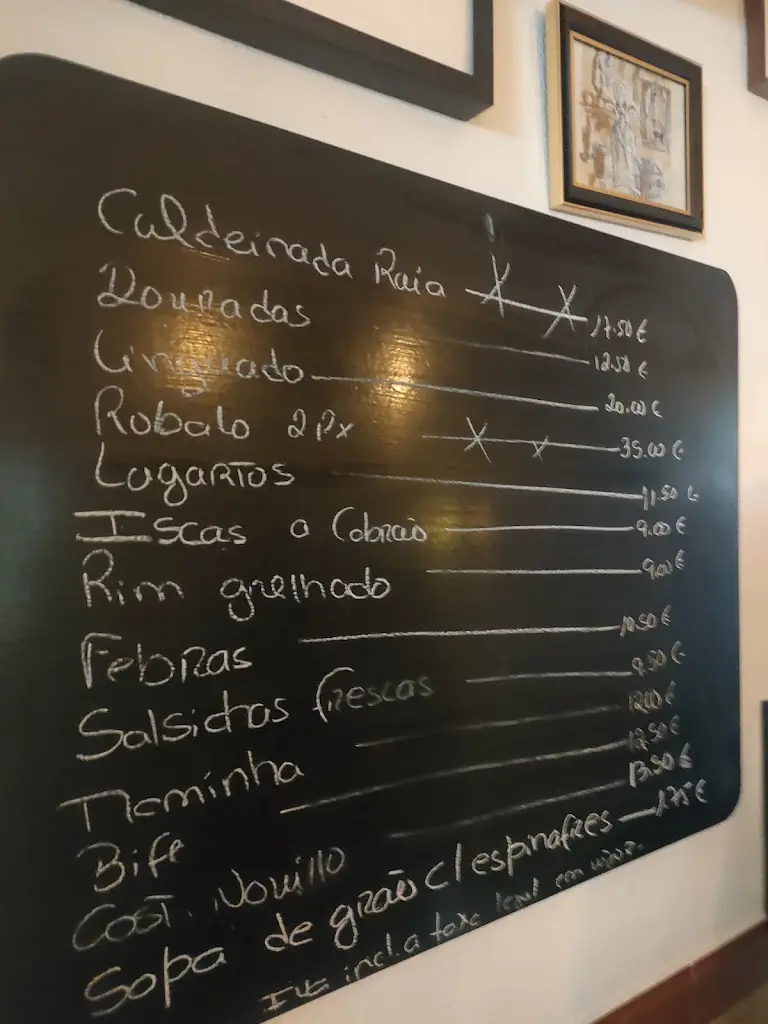 Caldeirada Raia 17.50€
Douradas 12.50€
Linguado 20.00€
Robalo 2Px 35.00€
Lagartos 11.50€
Iscas a Cobrão 9.00€
Rim grelhado 9.00€
Febras 10.50€
Salsichas frescas 9.50€
12.00€
Bife 12.50€
Cost. Novillo 13.50€
Sopa de grão c/ espinafres 1.75€
incl. a taxa legal em vigor.